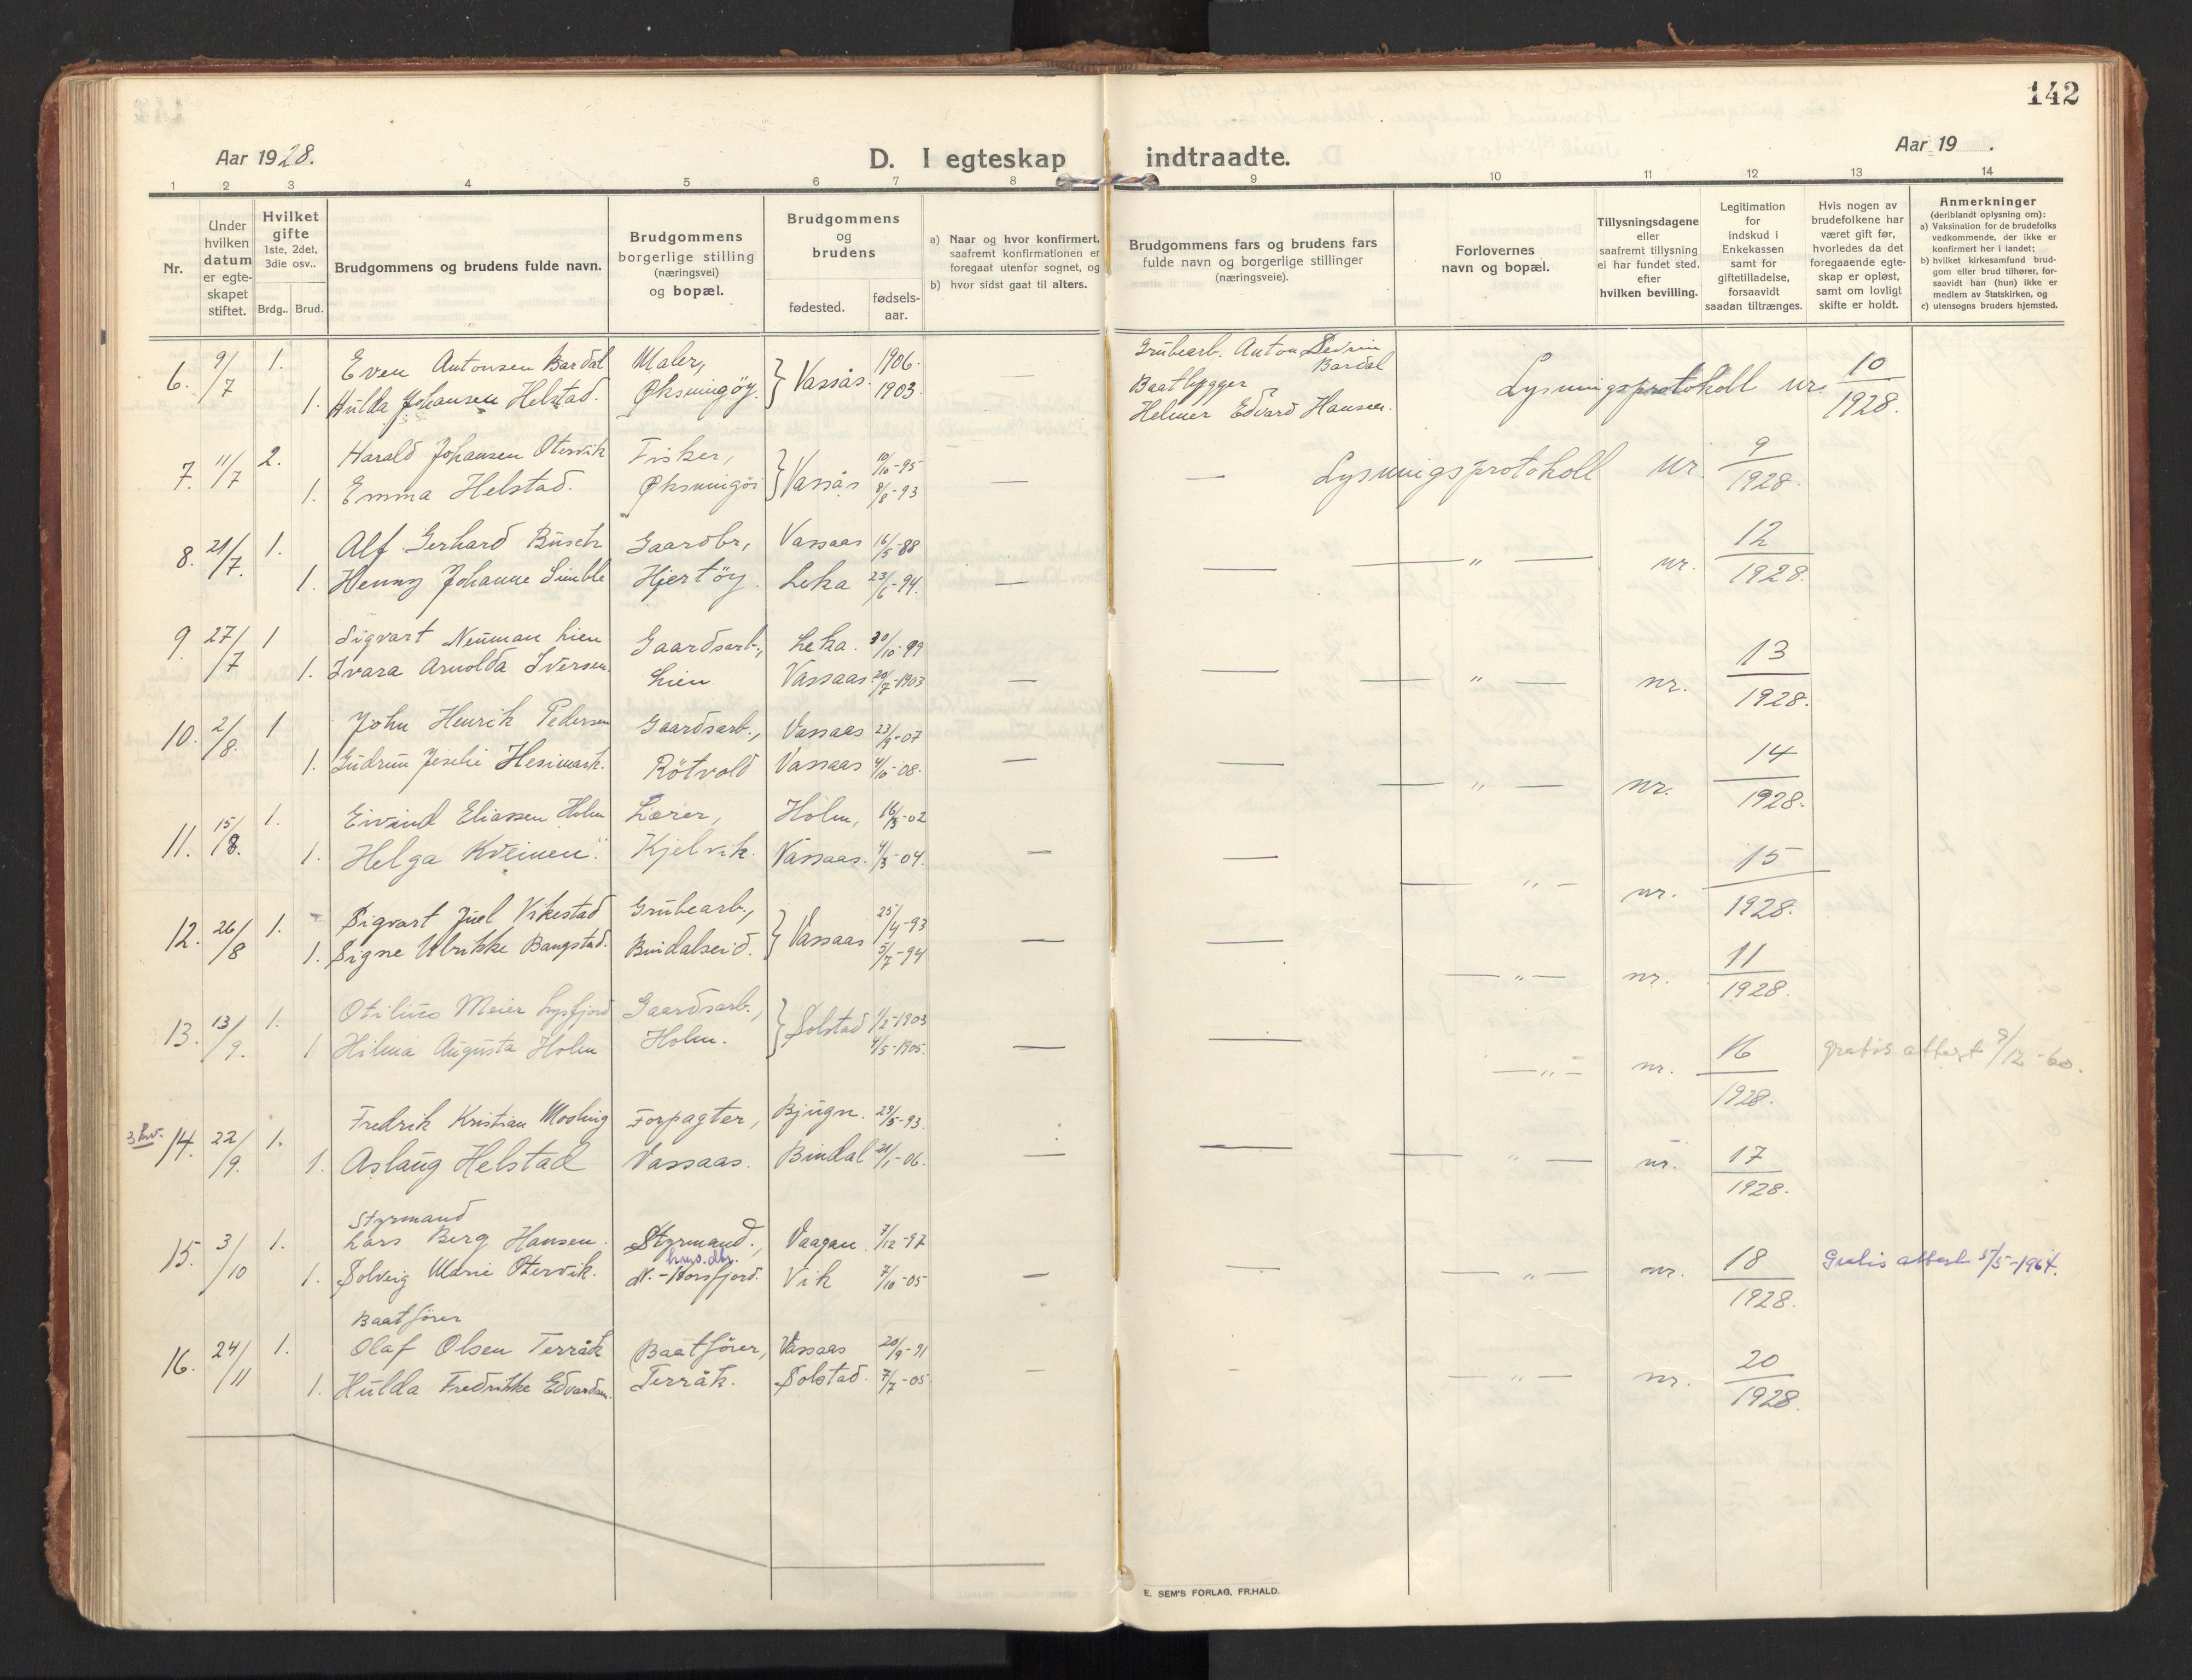 142
Aar 1928.
D. I egteskap indtraadte.
Aar 19 .
1 2 3 4 5 6 7 8 9 10 11 12 13 14
Nr.
Under hvilken datum er egte-skapet stiftet.
Hvilket gifte
1ste, 2det, 3die osv..
Brdg.. Brud.
Brudgommens og brudens fulde navn.
Brudgommens borgerlige stilling (næringsvei) og bopæl.
Brudgommens og brudens
fødested.
fødsels-aar.
a) Naar og hvor konfirmert, saafremt konfirmationen er foregaat utenfor sognet, og
b) hvor sidst gaat til alters.
Brudgommens fars og brudens fars fulde navn og borgerlige stillinger (næringsveie).
Forlovernes navn og bopæl.
Tillysningsdagene eller saafremt tillysning ei har fundet sted, efter hvilken bevilling.
Legitimation for indskud i Enkekassen samt for giftetilladelse, forsaavidt saadan tiltrænges.
Hvis nogen av brudefolkene har været gift før, hvorledes da det foregaaende egte-skap er opløst, samt om lovligt skifte er holdt.
Anmerkninger
(deriblandt oplysning om):
a) Vaksination for de brudefolks vedkommende, der ikke er konfirmert her i landet;
b) hvilket kirkesamfund brud-gom eller brud tilhører, for-saavidt han (hun) ikke er medlem av Statskirken, og
c) utensogns bruders hjemsted.
6. 9/7 1. Even Antonsen Bardal Maler, Vassås. 1906. — Grubearb. Anton Bardal
1. Hulda Johansen Helstad. Øksningøy. 1903. Baatbygger Helmer Edvard Hansen. Lysningsprotokoll nr. 10/1928.
7. 11/7 2. Harald Johansen Otervik Fisker, Vassås 10/10-95
1. Emma Helstad. Øksningöi 8/8-93 — — Lysningsprotokoll nr. 9/1928.
8. 21/7. 1. Alf Gerhard Busch Gaardbr, Vassaas 16/5-88
1. Henny Johanne Simble Hjertöy. Leka 23/6-94. — — — " — nr. 12/1928.
9. 27/7 1 Sigvart Neuman Lien Gaardsarb., Leka. 30/10-99
1. Ivara Arnolda Iversen. Lien Vassaas. 20/7-1903 — — — " — nr. 13/1928.
10. 2/8. 1 John Henrik Pedersen Gaardsarb., Vassaas 23/9-07
1. Gudrun Heimark. Rötvold Vassaas 4/10-08. — — — " — nr. 14/1928.
11. 15/8. 1. Eivind Eliassen Holm Lærer, Holm, 16/3-02
1. Helga Kveinen. Kjelvik. Vassaas. 4/3-04. — — — " — nr. 15/1928.
12. 26/8 1. Sigvart Juel Vikestad Grubearb., Vassaas 25/4-93
1. Signe Ulrikke Bangstad. Bindalseid. 5/7-94 — — — " — nr. 11/1928.
13. 13/9. 1. Otilius Meier Lysfjord Gaardsarb., Solstad 1/2-1903
1 Hilma Augusta Holm Holm. 4/5-1905. — — — " — nr. 16/1928. gratis attest 9/12-60.
14. 22/9. 1. Fredrik Kristian Forpagter, Bjugn. 29/5-93
1. Aslaug Helstad Vassaas. Bindal 21/1-06. — — — " — nr. 17/1928.
Styrmand
15. 3/10 1. Lars Berg Hansen. Styrmand., Vaagan. 7/12-97
1. Solveig Marie Otervik. N.-Horsfjord. Vik 7/10-05 — — — " — nr. 18/1928. Gratis attest 5/5-1964.
Baatförer
16. 24/11 1. Olaf Olsen Terråk Baatförer, Vassaas 20/9-91
1. Hulda Fredrikke Edvardsen. Terråk. Solstad. 7/7-05 — - — " — nr. 20/1928.
E. SEM'S FORLAG, FR.HALD.